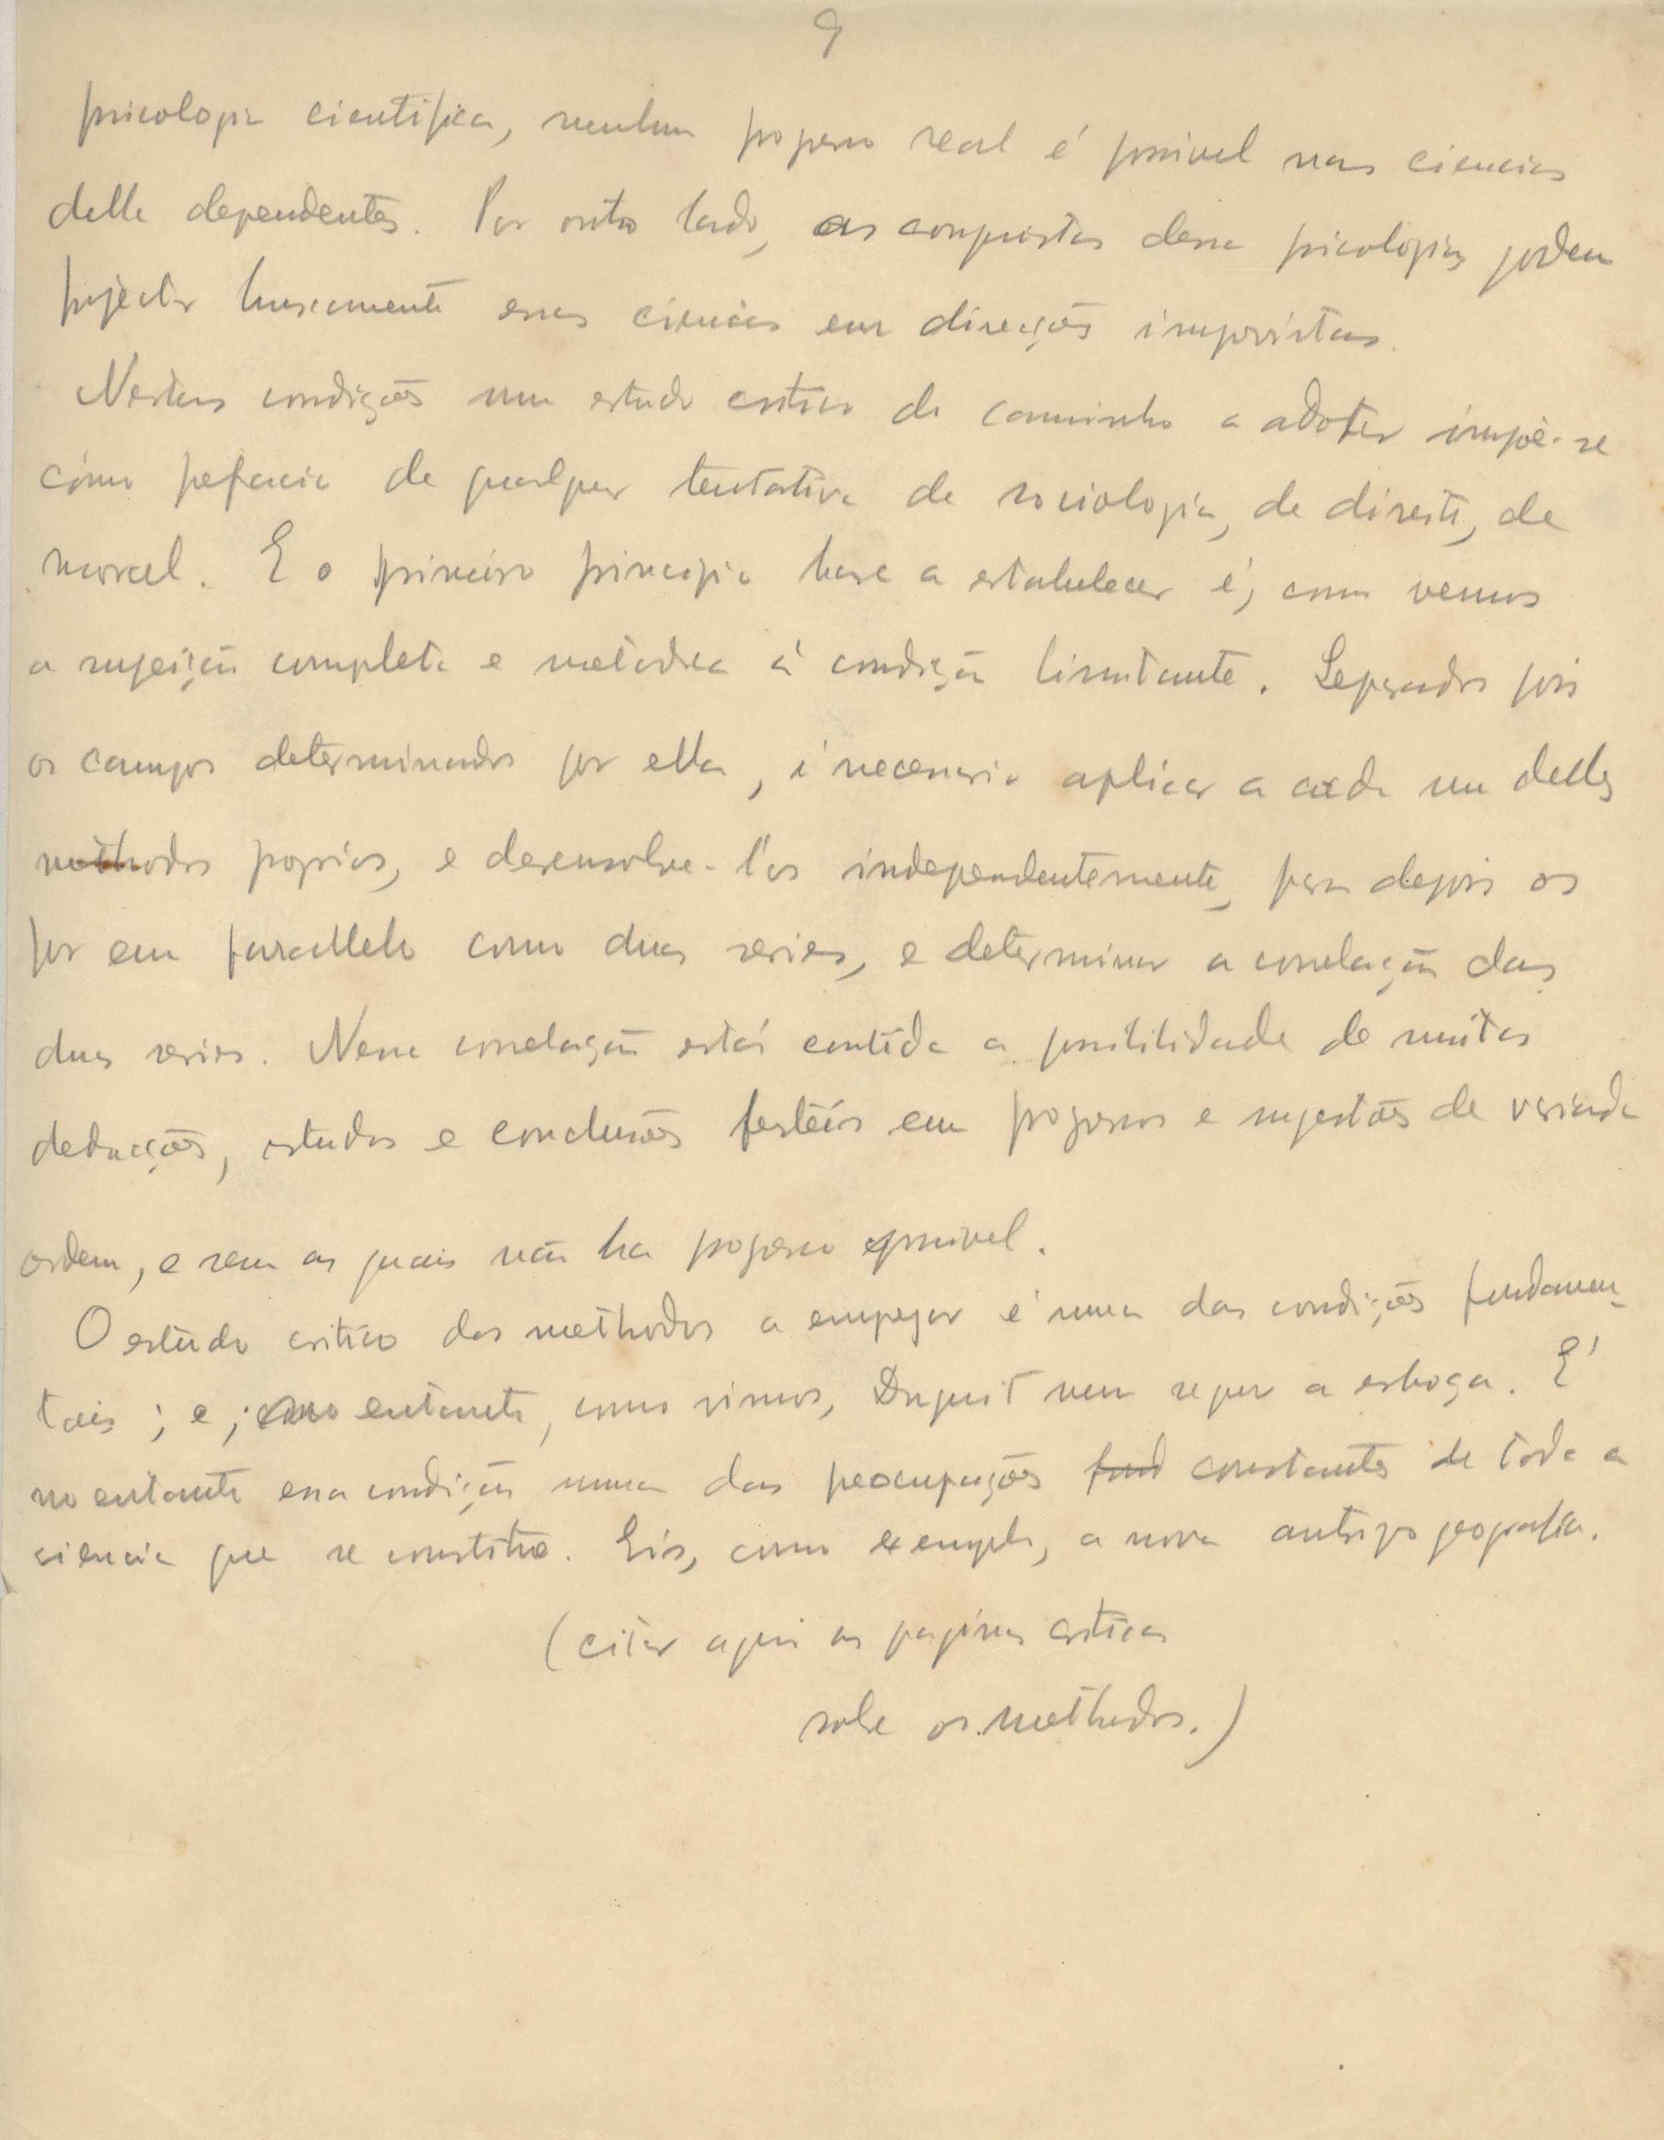 9
psicologia cientifica, nenhum progresso real é possivel nas ciencias
della dependentes. Por outro lado, as conquistas dessa psicologia podem
projectar bruscamente essas ciencias em direcções imprevistas.
Nestas condições um estudo critico do caminho a adoptar impõe-se
como prefacio de qualquer tentativa de sociologia, de direito, de
moral. E o primeiro principio base a estabelecer é, como vemos
a sujeição completa e metodica á condição limitante. Separados pois
os campos determinados por ella, é necessario aplicar a cada um delles
methodos proprios, e desenvolve-l'os independentemente, para depois os
por em parallelo como duas series, e determinar a correlação das
duas series. Nessa correlação está contida a possibilidade de muitas
deducções, estudos e conclusões ferteis em progressos e sugestões de variada
ordem, e sem as quais não ha progresso possivel.
O estudo critico dos methodos a empregar é uma das condições fundamen-
tais; e, no entanto, como vimos, Duguit nem sequer a esboça. E'
no entanto essa condição uma das preocupações fund constantes de toda a
sciencia que se constitue. Eis, como exemplo, a nova antropogeografia.
(citar aqui as paginas criticas
sobre os methodos.)